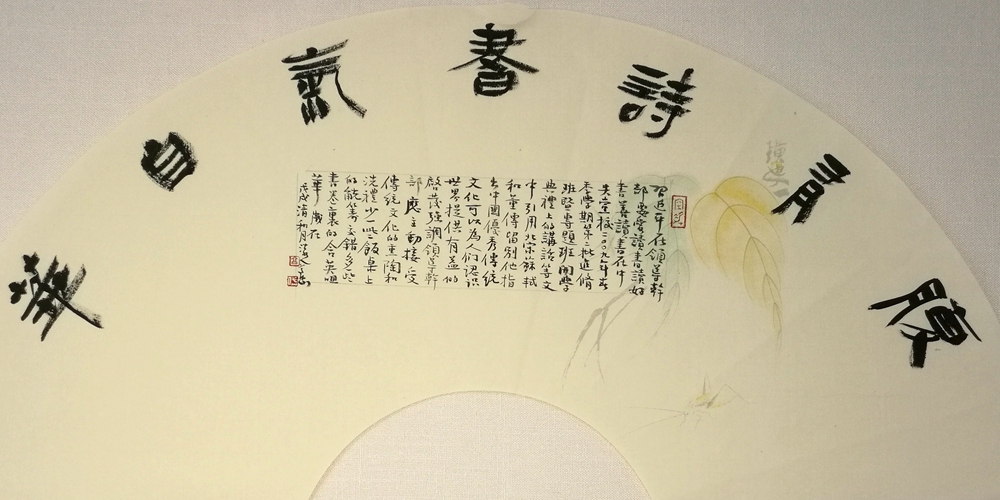 腹有詩書氣自華
習近平在領導幹
部要愛讀書讀好
書善讀書在中
央黨校二〇〇九年春
季學期第二批進修
班暨專題班開學
典禮上的講話等文
中引用北宋蘇軾
和董傳留別他指
出中國優秀傳統
文化可以為人們認識
世界提供有益的
啓發強調領導幹
部應主動接受
傳統文化的熏陶和
洗禮少一些飯桌上
的觥籌交錯多一些
書卷裏的含英咀
華
戊戌清和月